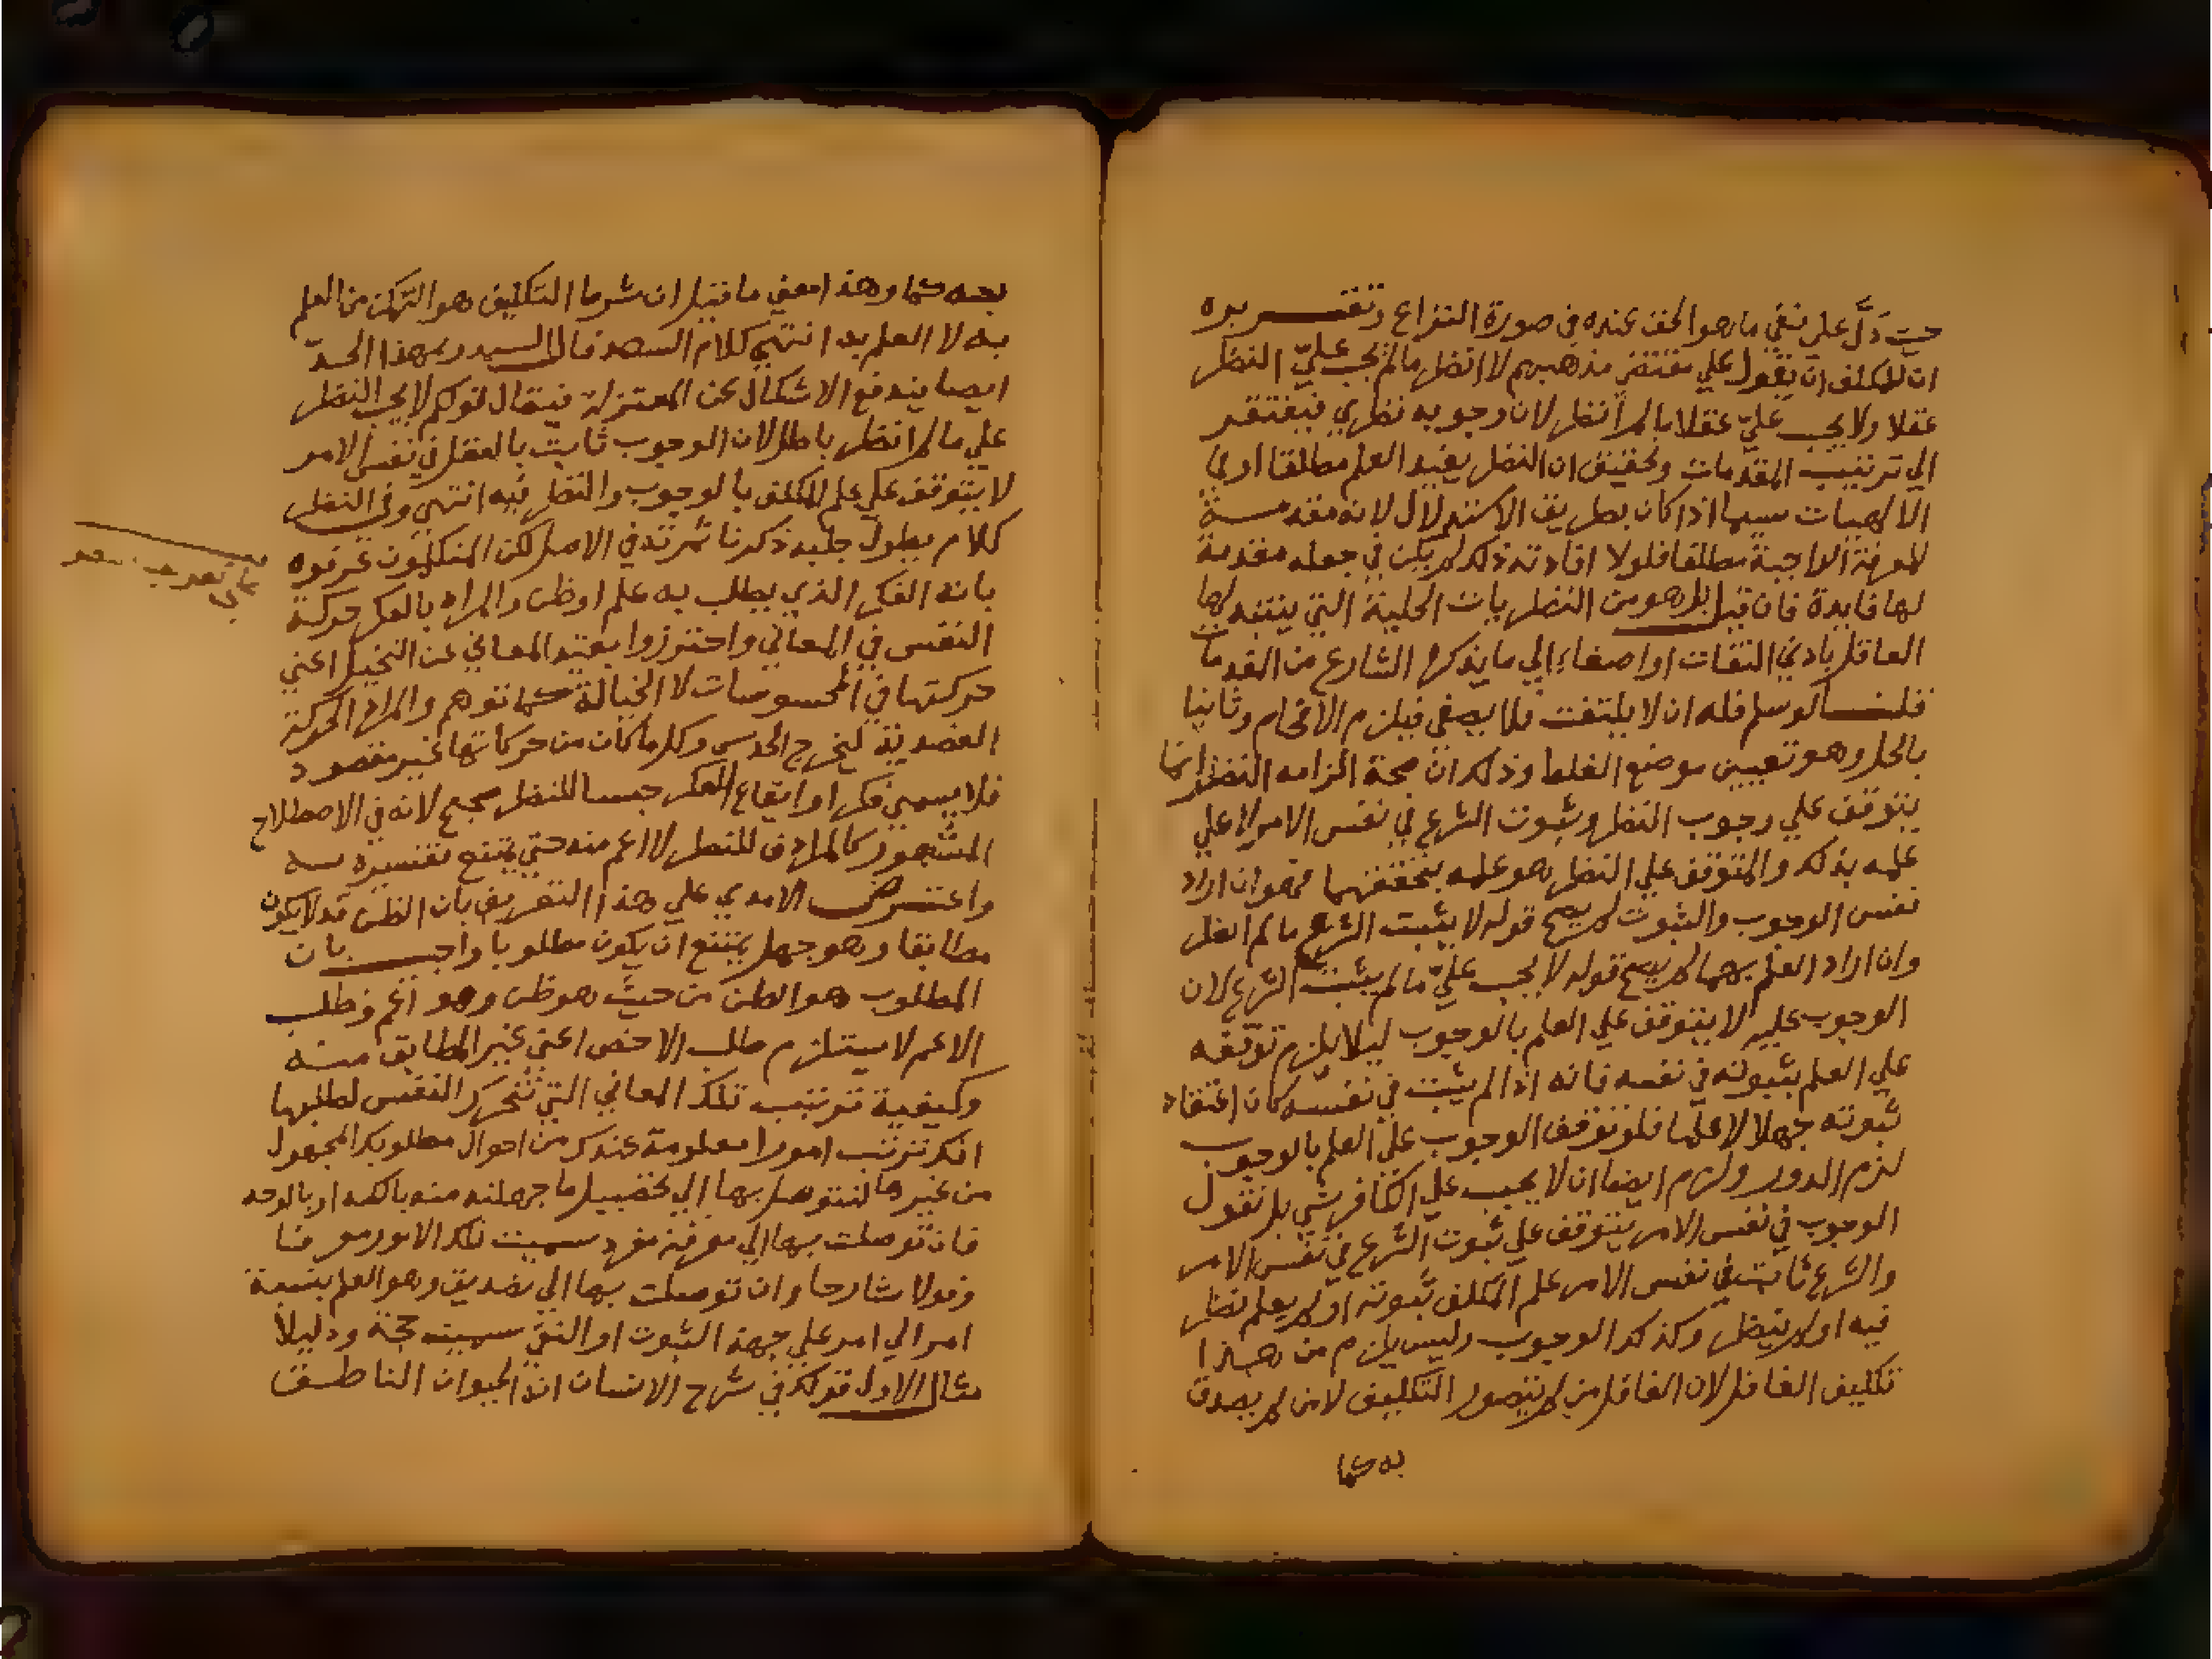 حيث دلَّ على نفي ما هو الحق عنده في صورة النزاع وتقــريره
ان للمكلف ان يقول علي مقتضي مذهبهم لا انظر ما لم يجب عليّ النظر
عقلا ولا يجب عليّ عقلا ما لم أنظر لان وجوبه نظري فيفتقر
الي ترتيب المقدمات وتحقيق ان النظر يفيد العلم مطلقا او في
الالهيات سيما اذا كان بطريق الاستدلال لانه مقدمــة
للمعرفة الواجبة مطلقا فلولا افادته ذلك لم يكن في جعله مقدمة
لها فايدة فان قيل بل هو من النظريات الجلية التي ينتبه لها
العاقل بادني التفات او اصغاء الي ما يذكره الشارع من المقدمات
قلنــا لو سلم فله ان لا يلتفت فلا يصغي فيلزم الافحام وثانيا
بالحل وهو تعيين موضع الغلط وذلك ان صحة الزامه النظر انما
يتوقف علي وجوب النظر وثبوت الشرع في نفس الامر لا علي
علمه بذلك والمتوقف علي النظر هو علمه بتحققهما فهو ان اراد
نفس الوجوب والثبوت لم يصح قوله لا يثبت الشرع ما لم انظر
وان اراد العلم بهما لم يصح قوله لا يجب عليّ ما لم يثبت الشرع لان
الوجوب عليه لا يتوقف علي العلم بالوجوب ليلا يلزم توقفه
علي العلم بثبوته في نفسه فانه اذا لم يثبت في نفسه كان اعتقاد
ثبوته جهلا لا علما فلو توقف الوجوب علي العلم بالوجوب
لزم الدور ولزم ايضا ان لا يجب علي الكافر شي بل نقول
الوجوب في نفس الامر يتوقف علي ثبوت الشرع في نفس الامر
والشرع ثابت في نفس الامر علم المكلف ثبوته او لم يعلم نظر
فيه او لم ينظر وكذلك الوجوب وليس يلزم من هــذا
تكليف الغافل لان الغافل من لم يتصور التكليف لا من لم يصدق
به كما
به كما وهذا معني ما قيل ان شرط التكليف هو التمكن من العلم
به لا العلم به انتهي كلام السعد قال السيد وبهذا الحدّ
ايضا يندفع الاشكال عن المعتزلة فيقال قولكم لا يجب النظر
علي ما لم انظر باطل لان الوجوب ثابت بالعقل في نفس الامر
لا يتوقف علي علم المكلف بالوجوب والنظر فيه انتهي وفي النظر
كلام يطول جلبه ذكرنا ثمرته في الاصل لكن المتكلمون عرفوه
بانه الفكر الذي يطلب به علم او ظن والمراد بالفكر حركة
النفس في المعاني واحترزوا بقيد المعاني عن التخيل اعني
حركتها في المحسوسات لا الخيالة كما توهم والمراد الحركة
القصدية ليخرج الحدس وكل ما كان من حركاتها غير مقصود
فلا يسمي فكرا وايقاع الفكر جنسا للنظر صحيح لانه في الاصطلاح
المشهور كالمرادف للنظر لا اعم منه حتي يمتنع تفسيره بــه
واعتــرض الامدي علي هذا التعريف بان الظن قد لا يكون
مطابقا وهو جهل يمتنع ان يكون مطلوبا واجيــب بان
المطلوب هو الظن من حيث هو ظن وهو اعم وطلب
الاعم لا يستلزم طلب الاخص اعني غير المطابق منــه
وكيفية ترتيب تلك المعاني التي تتحرك النفس لطلبها
انك ترتب امورا معلومة عندك من احوال مطلوبك المجهول
من غيرها لتتوصل بها الي تحصيل ما جهلته منه بالكنه او بالوجه
فان توصلت بها الي معرفة مفرد سميت تلك الامور معرفا
وقولا شارحا وان توصلت بها الي تصديق وهو العلم بنسبة
امر الي امر علي جهة الثبوت او النفي سميت حجة ودليلا
مثال الاول قولك في شرح الانسان انه الحيوان الناطــق